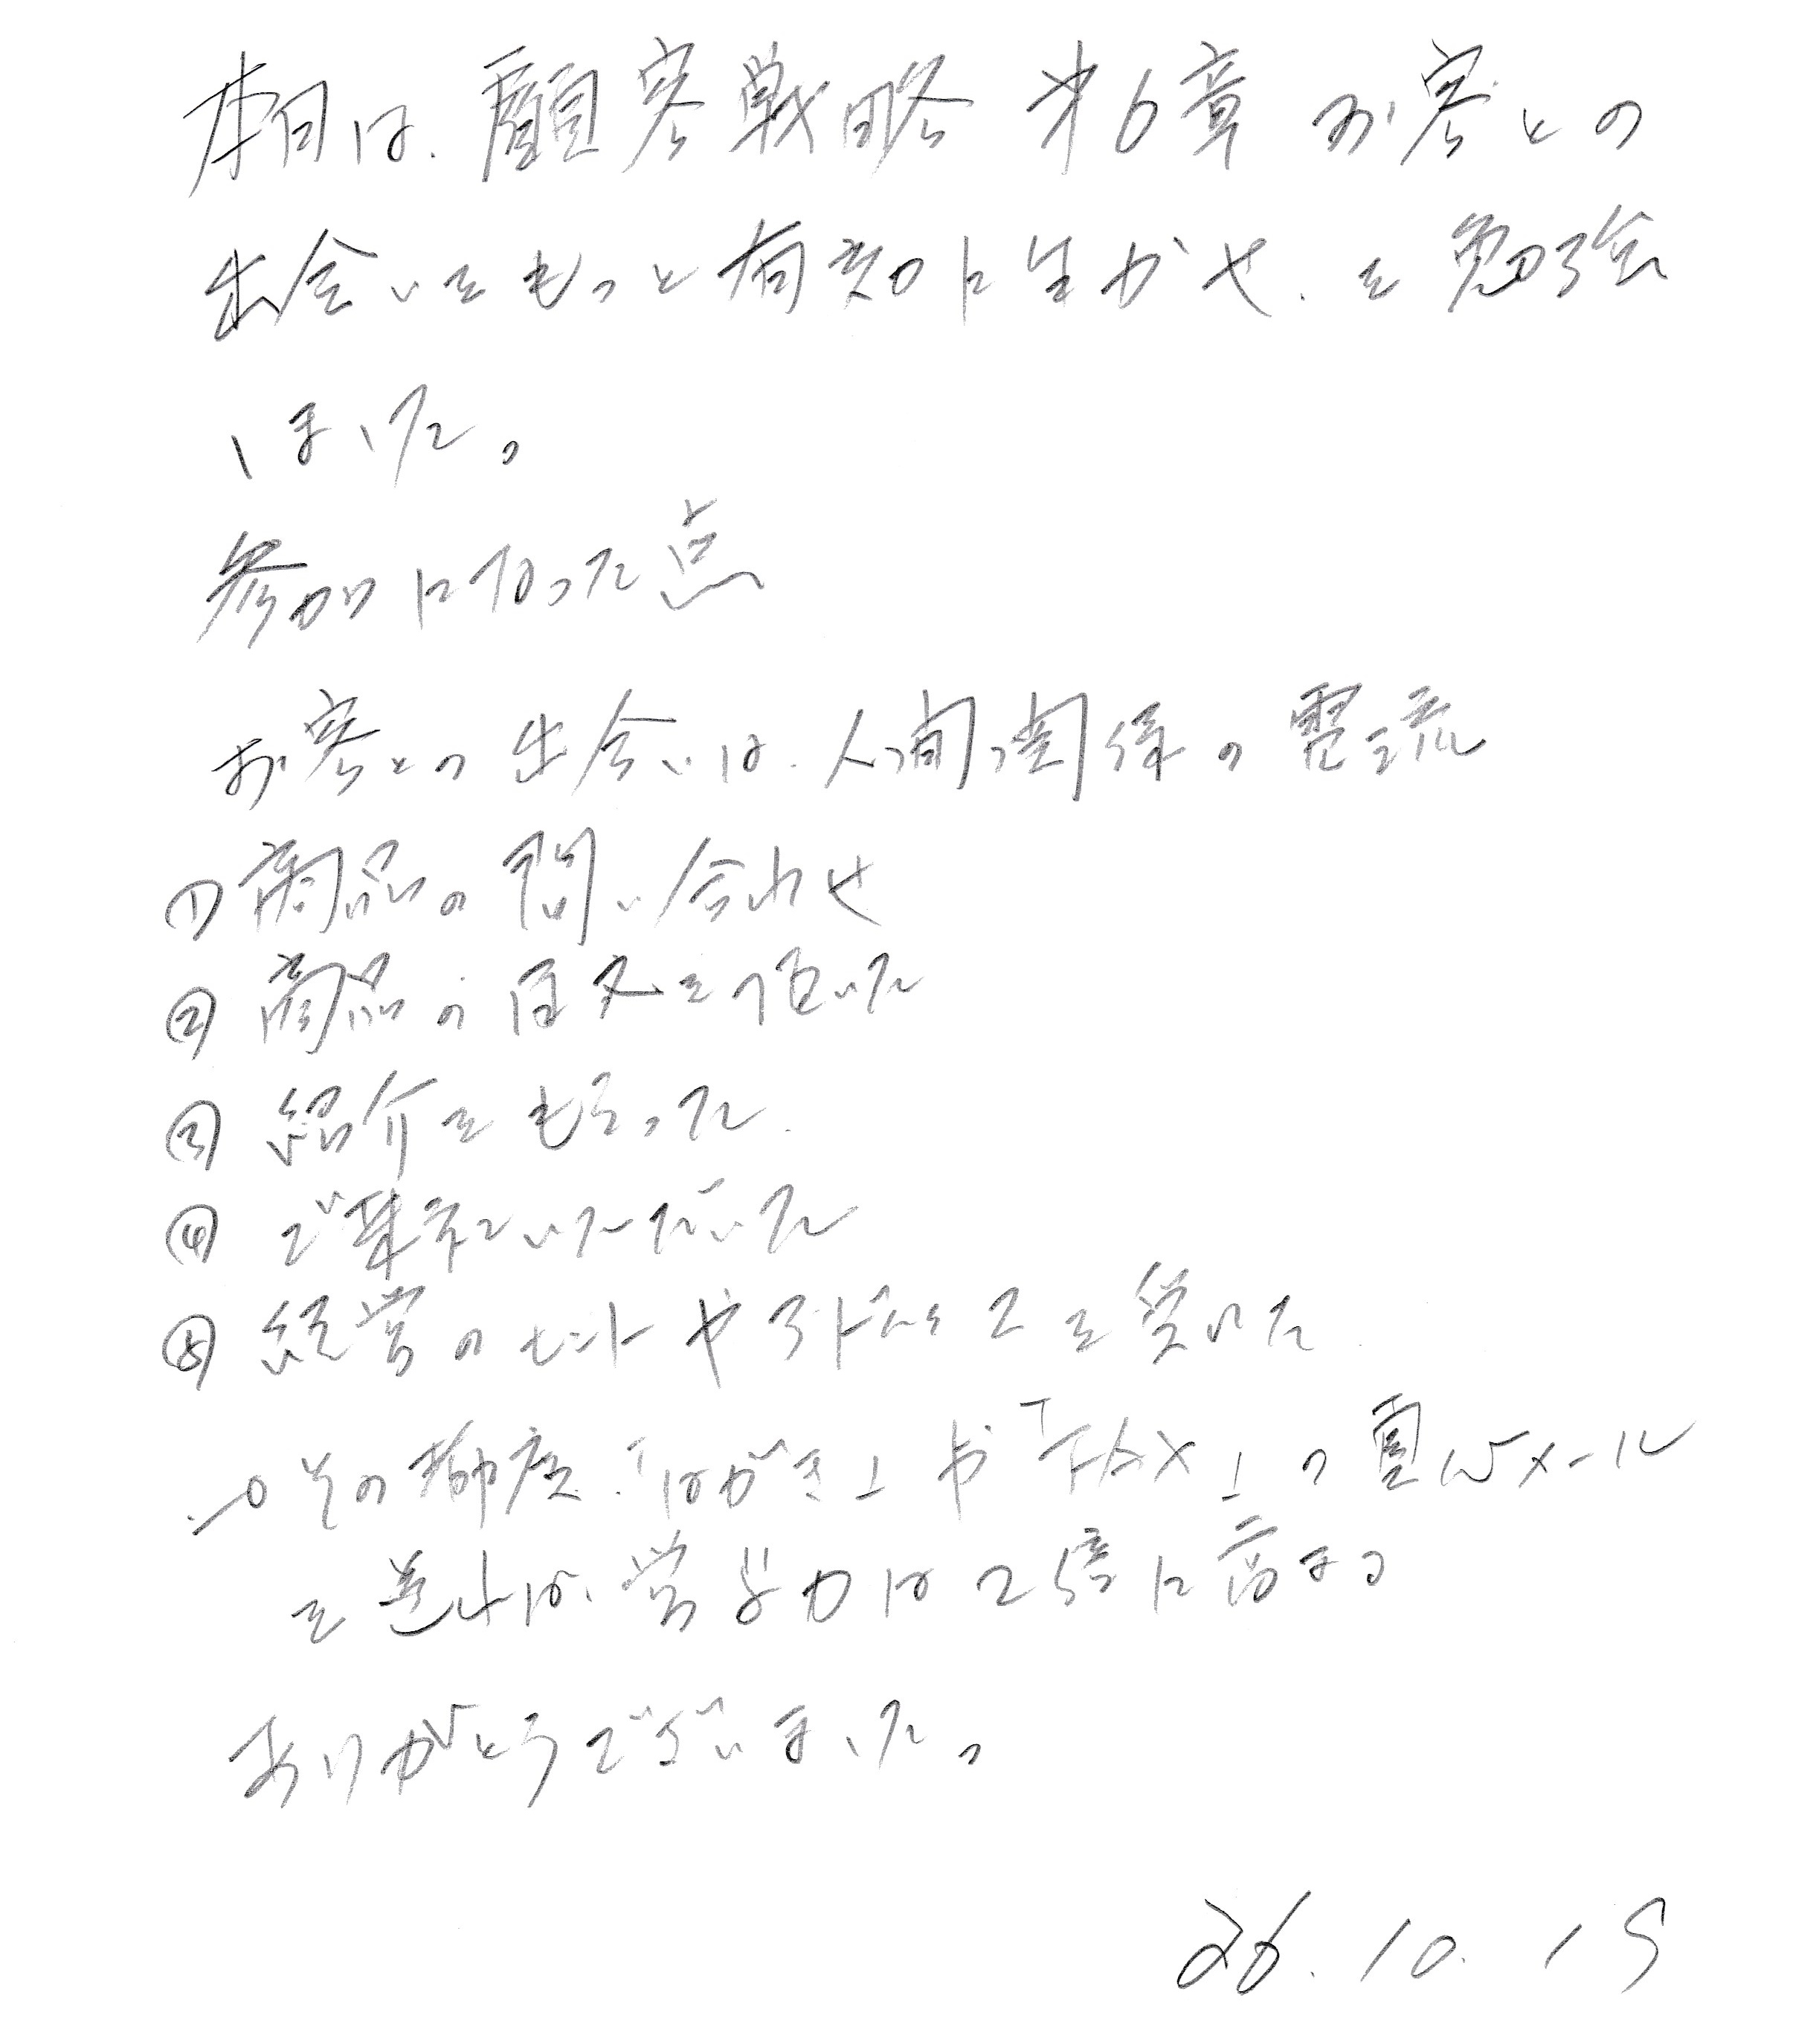 本日は、顧客戦略 才6章 お客との
出会いをもっと有効に生かせ、を勉強
しました。
参加になった点
お客との出会いは、人間関係の電流
① 商品の問い合わせ
② 商品の注文を頂いた
③ 紹介をもらった
④ ご来社いただいた
⑤ 経営のヒントやアドバイスを受けた
→その都度、「はがき」や「FAX」の電子メール
を送れば、営業力は2倍に高まる
ありがとうございました。
26.10.15